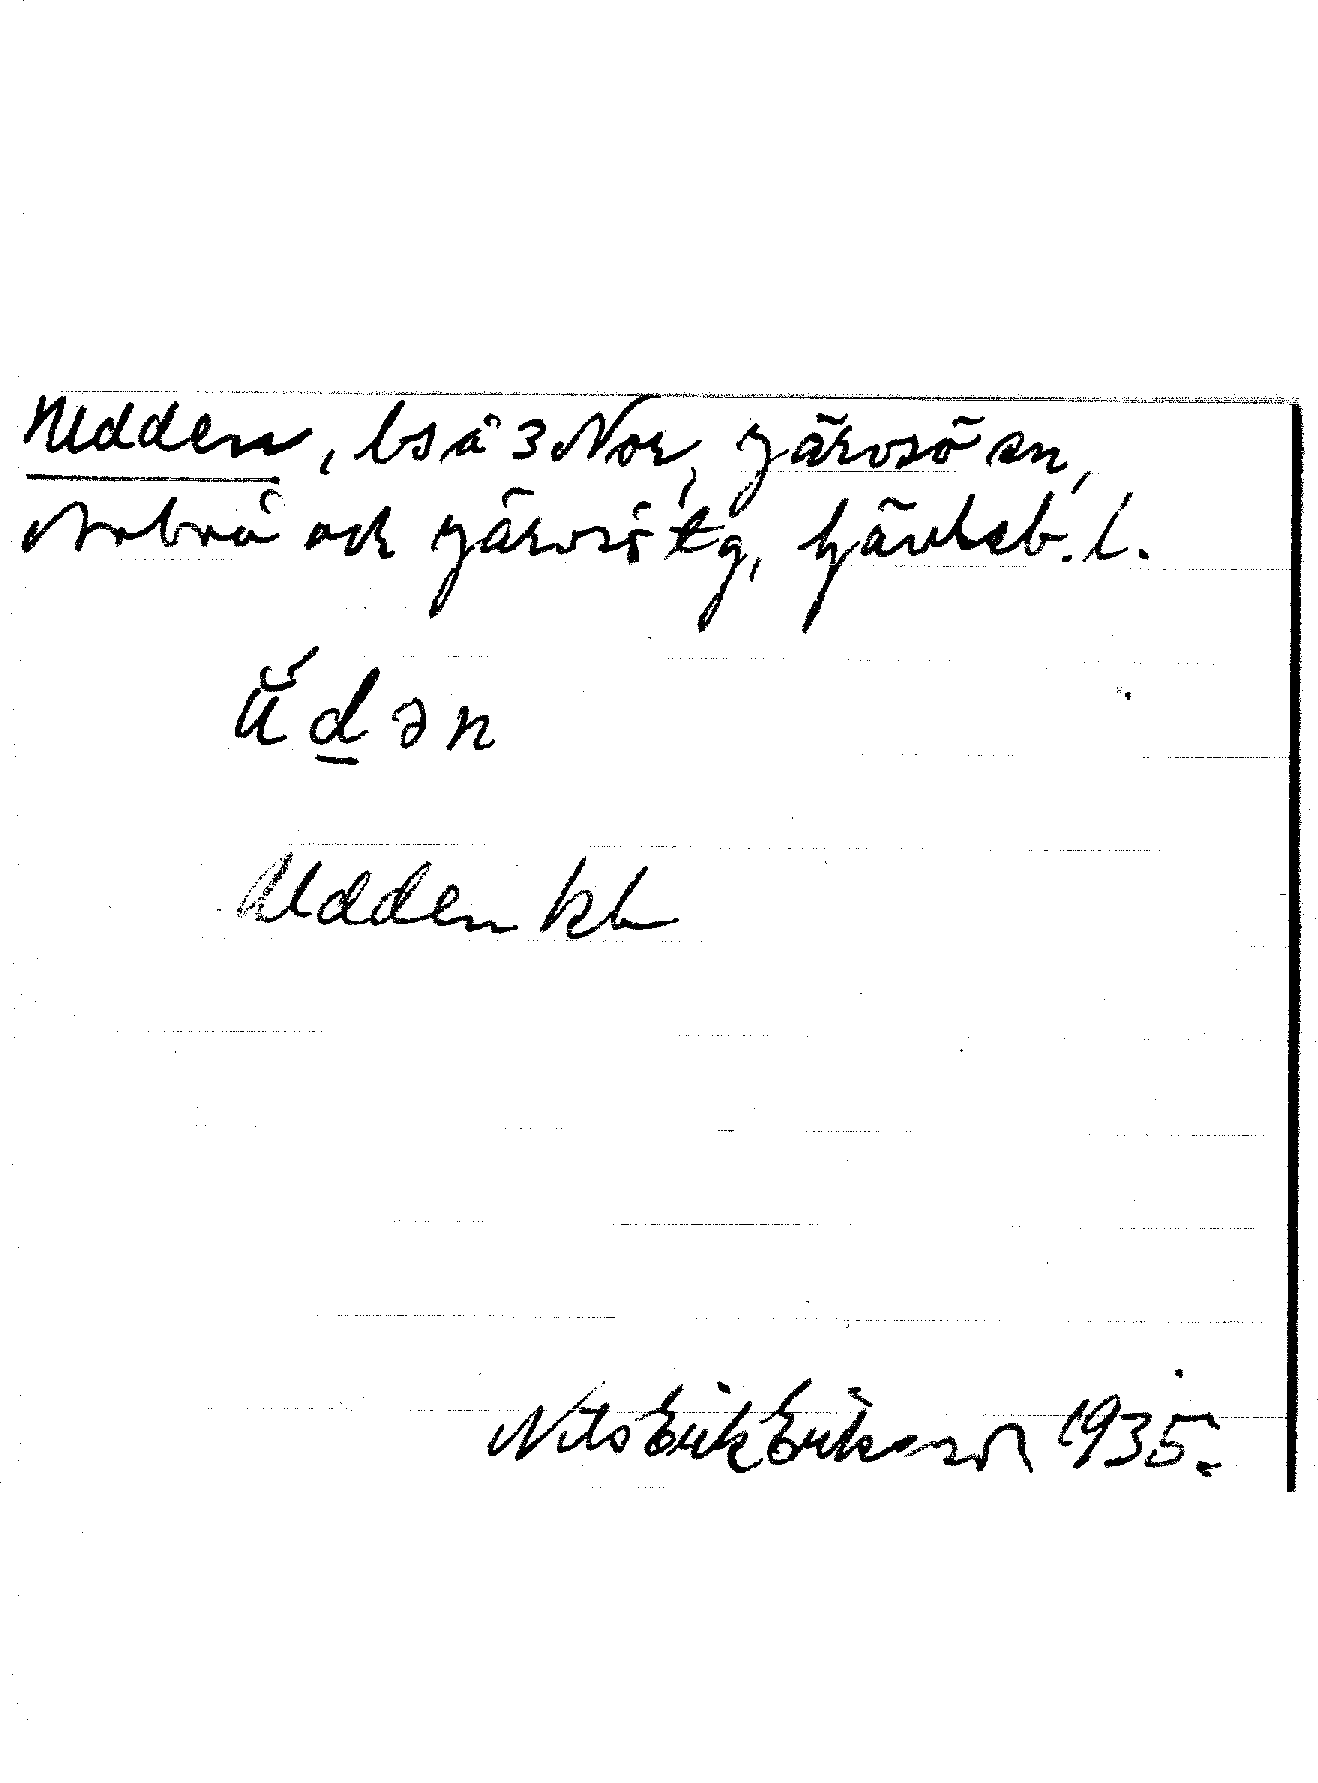 Udden, bs å 3 Nor, Järvsö sn,
Arbrå och Järvsö tg, Gävleb. l.
ŭ́dən
Udden kb
Nils Erik Eriksson 1935.